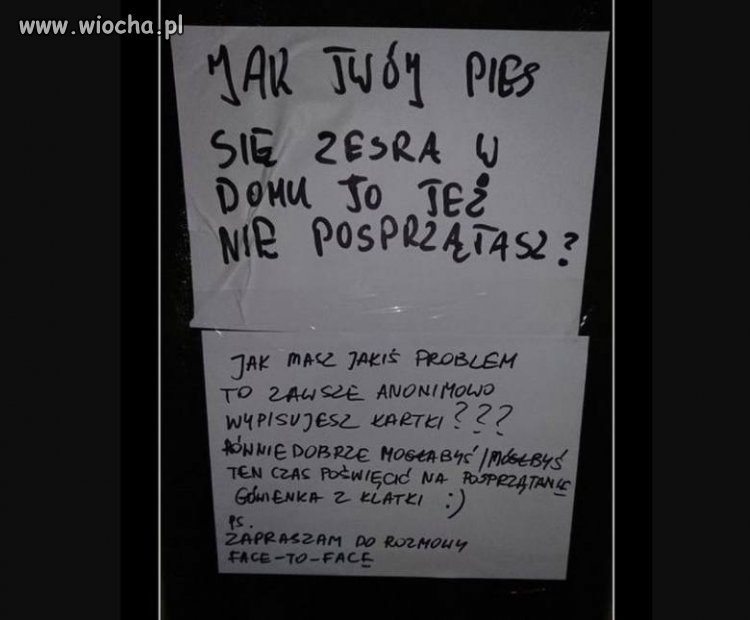 www.wiocha.pl
JAK TWÓJ PIES
SIĘ ZESRA W
DOMU TO TEŻ
NIE POSPRZĄTASZ?
JAK MASZ JAKIŚ PROBLEM
TO ZAWSZE ANONIMOWO
WYPISUJESZ KARTKI???
RÓWNIE DOBRZE MOGŁABYŚ/MÓGŁBYŚ
TEN CZAS POŚWIĘCIĆ NA POSPRZĄTANIE
GÓWIENKA Z KLATKI :)
PS.
ZAPRASZAM DO ROZMOWY
FACE-TO-FACE